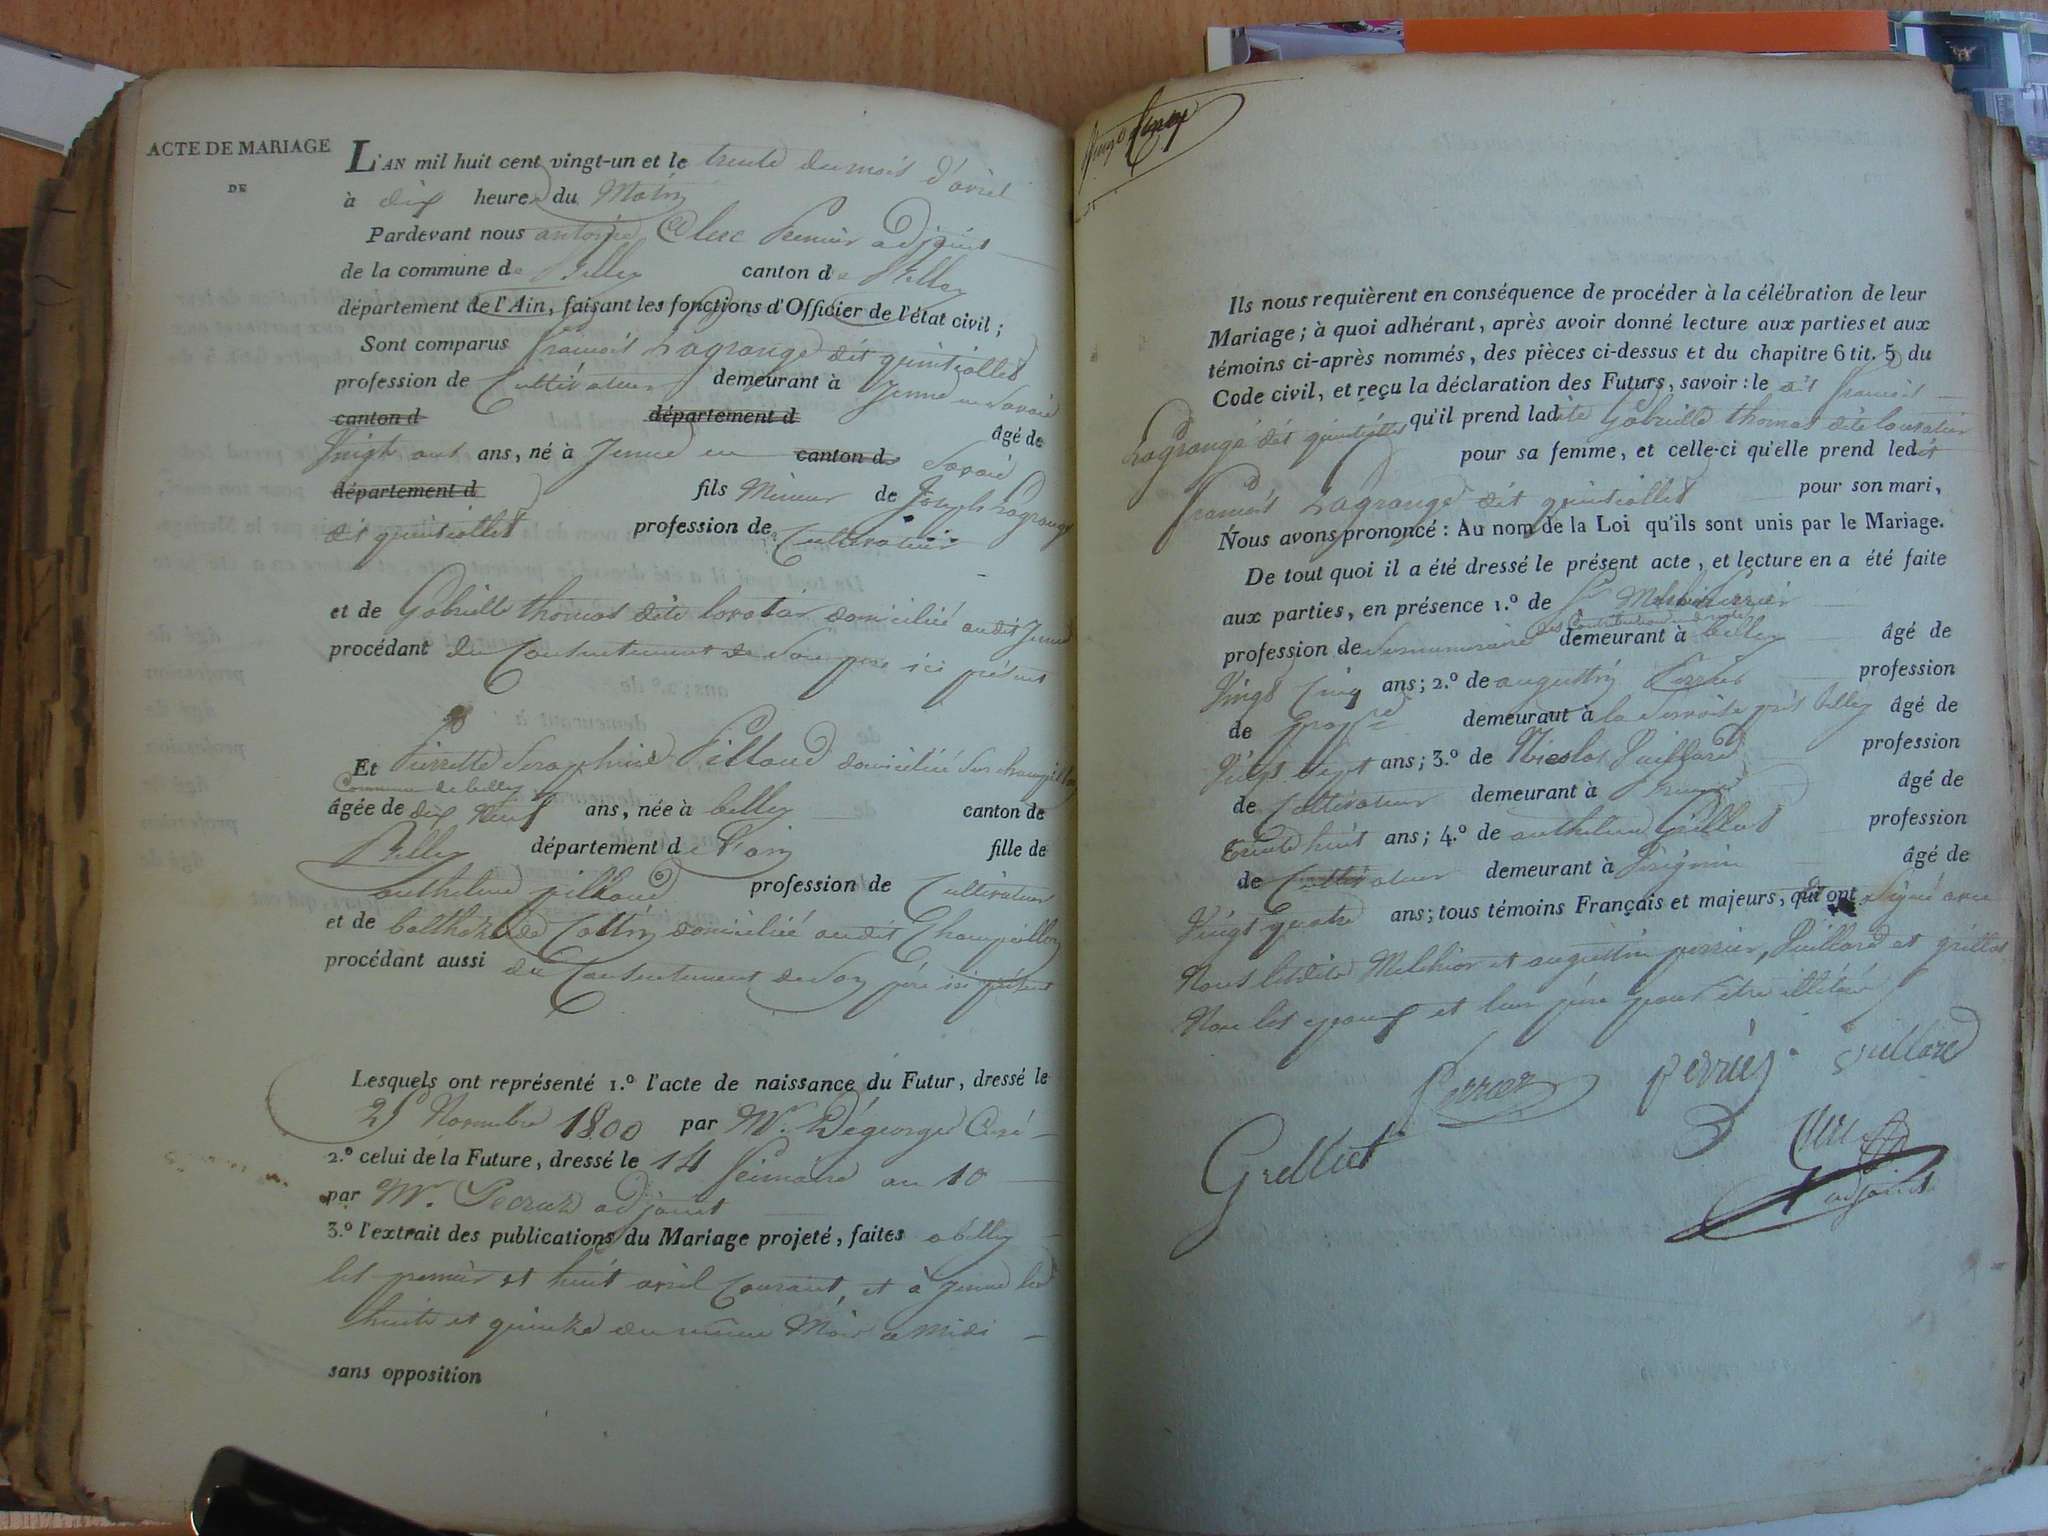 ACTE DE MARIAGE
DE
L'AN mil huit cent vingt-un et le trente du mois d'avril
à dix heures du Matin
Pardevant nous antoine Clerc Premier adjoint
de la commune de Belley canton de Belley
département de l'Ain, faisant les fonctions d'Officier de l'état civil ;
Sont comparus francois Lagrange dit quinsiollet
profession de Cultivateur demeurant à Jenne en Savoie
canton d département d âgé de
Vingt ans ans, né à Jenne en canton d Savoie
département d fils Mineur de Joseph Lagrange
dit quinsiollet profession de Cultivateur
et de Gabrielle thomas dite domicilié audit Jenne
procédant du Consentement de Son père ici présent
Et Pierrette Seraphine Pillaud domiciliée Sur champillon
Commune de belley
âgée de dix Neuf ans, née à belley canton de
Belley département de l'ain fille de
anthelme pillaud profession de Cultivateur
et de balthazarde Cottin domicilié audit Champillon
procédant aussi du Consentement de Son père ici présent
Lesquels ont représenté 1.º l'acte de naissance du Futur, dressé le
Novembre 1800 par Mr. Dégeorges Curé
2.º celui de la Future, dressé le 14 frimaire an 10
par Mr. adjoint
3.º l'extrait des publications du Mariage projeté, faites a belley
les premier et huit avril Courant, et à Jenne les
huit et quinze du même Mois a Midi
sans opposition
Ils nous requièrent en conséquence de procéder à la célébration de leur
Mariage ; à quoi adhérant, après avoir donné lecture aux parties et aux
témoins ci-après nommés, des pièces ci-dessus et du chapitre 6 tit. 5 du
Code civil, et reçu la déclaration des Futurs, savoir : le dit francois
Lagrange dit quinsiollet qu'il prend ladite Gabrielle thomas dite
pour sa femme, et celle-ci qu'elle prend ledit
francois Lagrange dit quinsiollet pour son mari,
Nous avons prononcé : Au nom de la Loi qu'ils sont unis par le Mariage.
De tout quoi il a été dressé le présent acte, et lecture en a été faite
aux parties, en présence 1.º de Sr Melchior Perrier
des Contributions indirectes
profession de Surnumeraire demeurant à belley âgé de
Vingt Cinq ans ; 2.º de augustin Perrier profession
de demeurant à la près belley âgé de
Vingt Sept ans ; 3.º de Nicolas Puillard profession
de Cultivateur demeurant à âgé de
trente huit ans ; 4.º de anthelme Grillet profession
de Cultivateur demeurant à Peizieu âgé de
Vingt quatre ans ; tous témoins Français et majeurs, qui ont Signé avec
Nous lesdits Melchior et augustin perrier, Puillard et grillet
Non les epoux et leur père pour être illétéré
Perrier perrier
Grelliet Clerc
adjoint